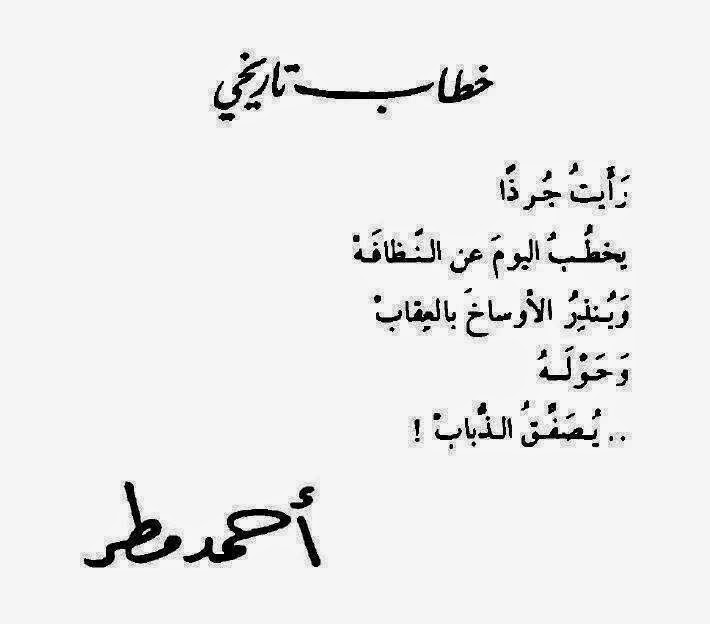 خطاب تاريخي
رَأَيتُ جُرذًا
يخطُبُ اليومَ عن النَّظافَهْ
وَيُنذِرُ الأوساخَ بالعِقابْ
وَحَوْلَهُ
.. يُصَفِّقُ الذُّبابْ !
أحمد مطر